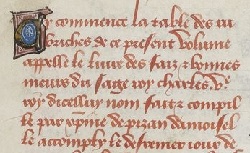 Cy commence la table des ru
briches de ce present volume
appelle le livre des faiz & bonnes
meurs du sage roy charles v.e
roy dicellui nom fait & compil
le par xpine de pizan damoiselle
accomply le derrenier iour de